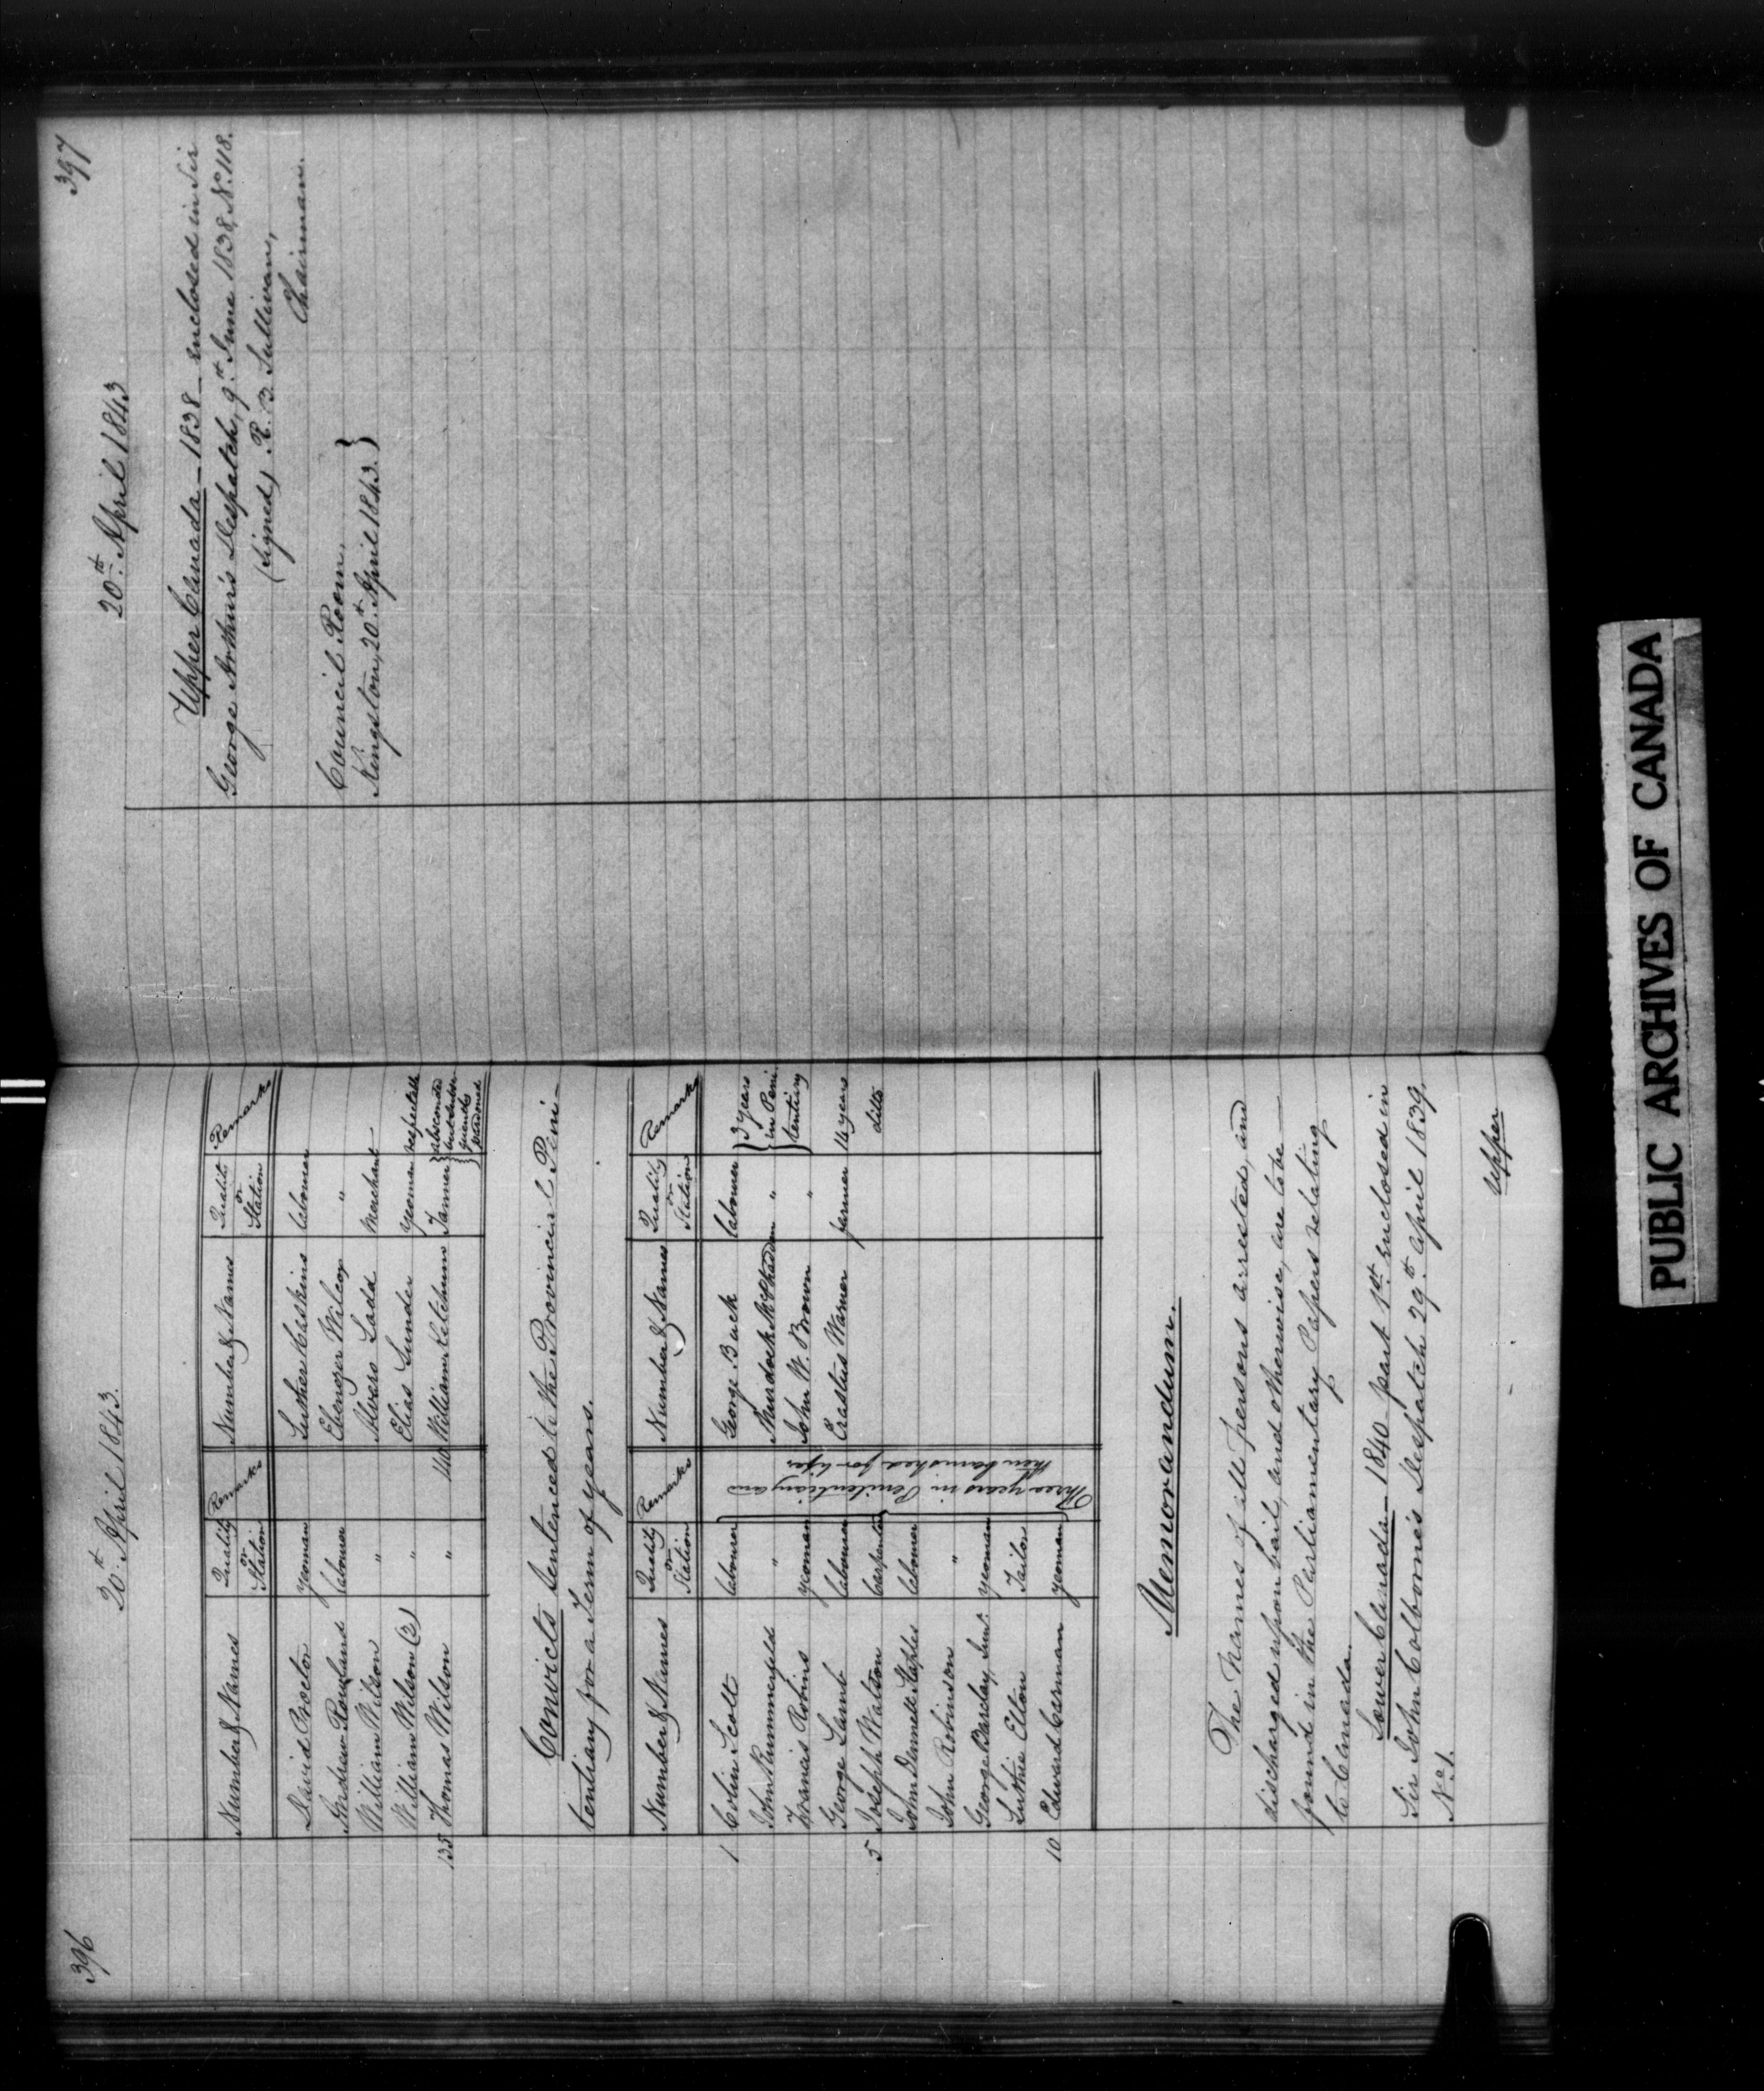 396
20th April 1843.
Number & Names | Quality or Station | Remarks | Number & Names | Quality or Station | Remarks
David Proctor | yeoman | | Luther Haskins | labourer
Andrew Rowland | labourer | | Ebenezer Wilcox | "
William Wilson | " | | Alvaro Ladd | Merchant
William Wilson (2) | " | | Elias Snider | yeoman | respectable
135 Thomas Wilson | " | | 140 William Ketchum | Tanner | } absconded but subsequently pardoned
Convicts sentenced to the Provincial Peni-
tentiary for a Term of years.
Number & Names | Quality or Station | Remarks | Number & Names | Quality or Station | Remarks
1 Colin Scott | labourer | Three years in Penitentiary and then banished for life | George Buck | labourer | } 3 years in Peni-tentiary
John Rummerfeld | " | | Murdoch McPhadden | "
Francis Robins | yeoman | | John W. Brown | "
George Lamb | labourer | | Erastus Warner | farmer | 14 years
5 Joseph Watson | Carpenter | | | | ditto
John Dennett Staples | labourer
John Robinson | "
George Barclay, Junr. | yeoman
Luthie Elton | Tailor
10 Edward Carman | yeoman
Memorandum.
The Names of all persons arrested, and
discharged upon bail, and otherwise, are to be
found in the Parliamentary Papers relating
to Canada.
Lower Canada — 1840 — part 1st. enclosed in
Sir John Colborne's Despatch 29th April 1839,
No. 1.
Upper
397
20th April 1843
Upper Canada — 1838 — enclosed in Sir
George Arthur's Despatch, 9th June 1838, No. 118.
(signed) R. B. Sullivan,
Chairman.
Council Room,
Kingston, 20th April 1843. }
PUBLIC ARCHIVES OF CANADA